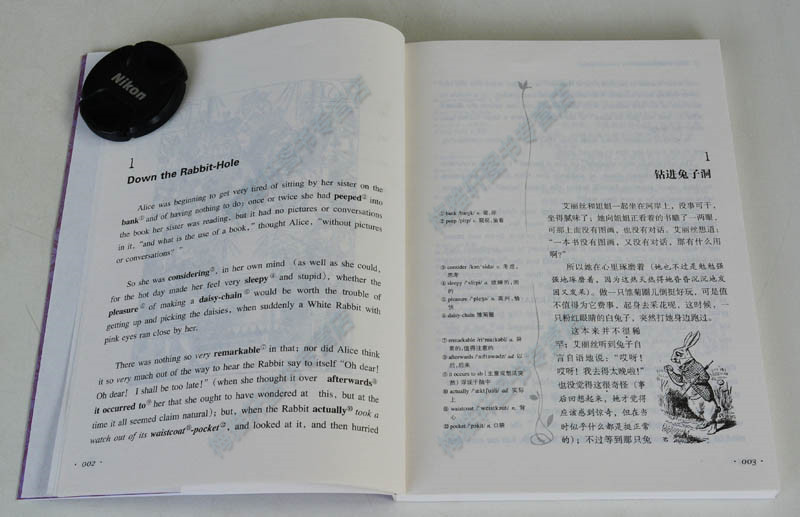 Nikon
1
Down the Rabbit-Hole
Alice was beginning to get very tired of sitting by her sister on the
bank① and of having nothing to do; once or twice she had peeped② into
the book her sister was reading, but it had no pictures or conversations
in it, "and what is the use of a book," thought Alice, "without pictures
or conversations? "
So she was considering③, in her own mind (as well as she could,
for the hot day made her feel very sleepy④ and stupid), whether the
pleasure⑤ of making a daisy-chain⑥ would be worth the trouble of
getting up and picking the daisies, when suddenly a White Rabbit with
pink eyes ran close by her.
There was nothing so very remarkable⑦ in that; nor did Alice think
it so very much out of the way to hear the Rabbit say to itself "Oh dear!
Oh dear! I shall be too late!" (when she thought it over afterwards⑧
it occurred to⑨ her that she ought to have wondered at this, but at the
time it all seemed claim natural); but, when the Rabbit actually⑩ took a
watch out of its waistcoat⑪-pocket⑫, and looked at it, and then hurried
· 002 ·
1
钻进兔子洞
① bank /bæŋk/ n. 堤,岸
② peep /piːp/ v. 窥视,偷看
③ consider /kənˈsidə/ v. 考虑,
思考
④ sleepy /ˈsliːpi/ a. 瞌睡的,困
的
⑤ pleasure /ˈpleʒə/ n. 高兴,愉
快
⑥ daisy-chain 雏菊圈
⑦ remarkable /riˈmɑːkəbl/ a. 异
常的,值得注意的
⑧ afterwards /ˈɑːftəwədz/ ad. 以
后,后来
⑨ it occurs to sb (主意或想法突
然)浮现于脑中
⑩ actually /ˈæktjuəli/ ad. 实际
上
⑪ waistcoat /ˈweistkəut/ n. 背
心
⑫ pocket /ˈpɔkit/ n. 口袋
艾丽丝和姐姐一起坐在河岸上,没事可干,
坐得腻味了;她向姐姐正看着的书瞄了一两眼,
可那上面没有图画,也没有对话。艾丽丝想道:
“一本书没有图画,又没有对话,那有什么用
啊?”
所以她在心里琢磨着(她也不过是勉勉强
强地琢磨着,因为这热天热得她昏昏沉沉地发
困又发呆)。做一只雏菊圈儿倒挺好玩,可是值
不值得为它费事,起身去采花呢,这时候,一
只粉红眼睛的白兔子,突然打她身边跑过。
这本来并不很稀
罕;艾丽丝听到兔子自
言自语地说:“哎呀!
哎呀!我去得太晚啦!”
也没觉得这很奇怪(事
后回想起来,她才觉得
应该感到惊奇,但在当
时似乎什么都是挺正常
的);不过等到那只兔
· 003 ·